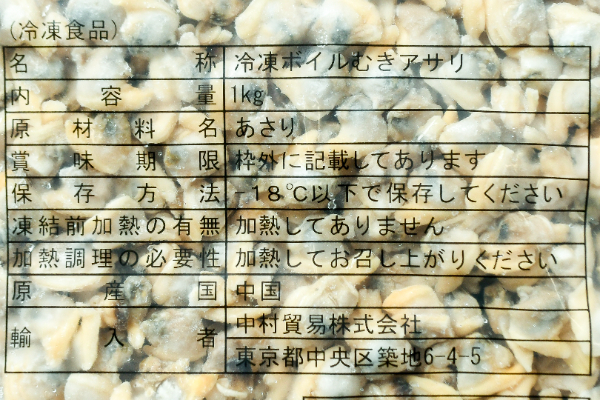 (冷凍食品)
名称 冷凍ボイルむきアサリ
内容量 1kg
原材料名 あさり
賞味期限 枠外に記載してあります
保存方法 -18℃以下で保存してください
凍結前加熱の有無 加熱してありません
加熱調理の必要性 加熱してお召し上がりください
原産国 中国
輸入者 中村貿易株式会社
東京都中央区築地6-4-5